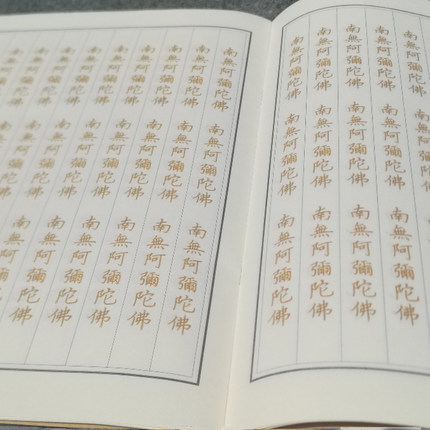 南無阿彌陀佛南無阿彌陀佛
南無阿彌陀佛南無阿彌陀佛南無阿彌陀佛
南無阿彌陀佛南無阿彌陀佛南無阿彌陀佛
南無阿彌陀佛南無阿彌陀佛南無阿彌陀佛
南無阿彌陀佛南無阿彌陀佛南無阿彌陀佛
南無阿彌陀佛南無阿彌陀佛南無阿彌陀佛
南無阿彌陀佛南無阿彌陀佛南無阿彌陀佛
南無阿彌陀佛南無阿彌陀佛南無阿彌陀佛
南無阿彌陀佛南無阿彌陀佛南無阿彌陀佛
南無阿彌陀佛南無阿彌陀佛南無阿彌陀佛
南無阿彌陀佛南無阿彌陀佛
南無阿彌陀佛南無阿彌陀佛
南無阿彌陀佛
南無阿彌陀佛